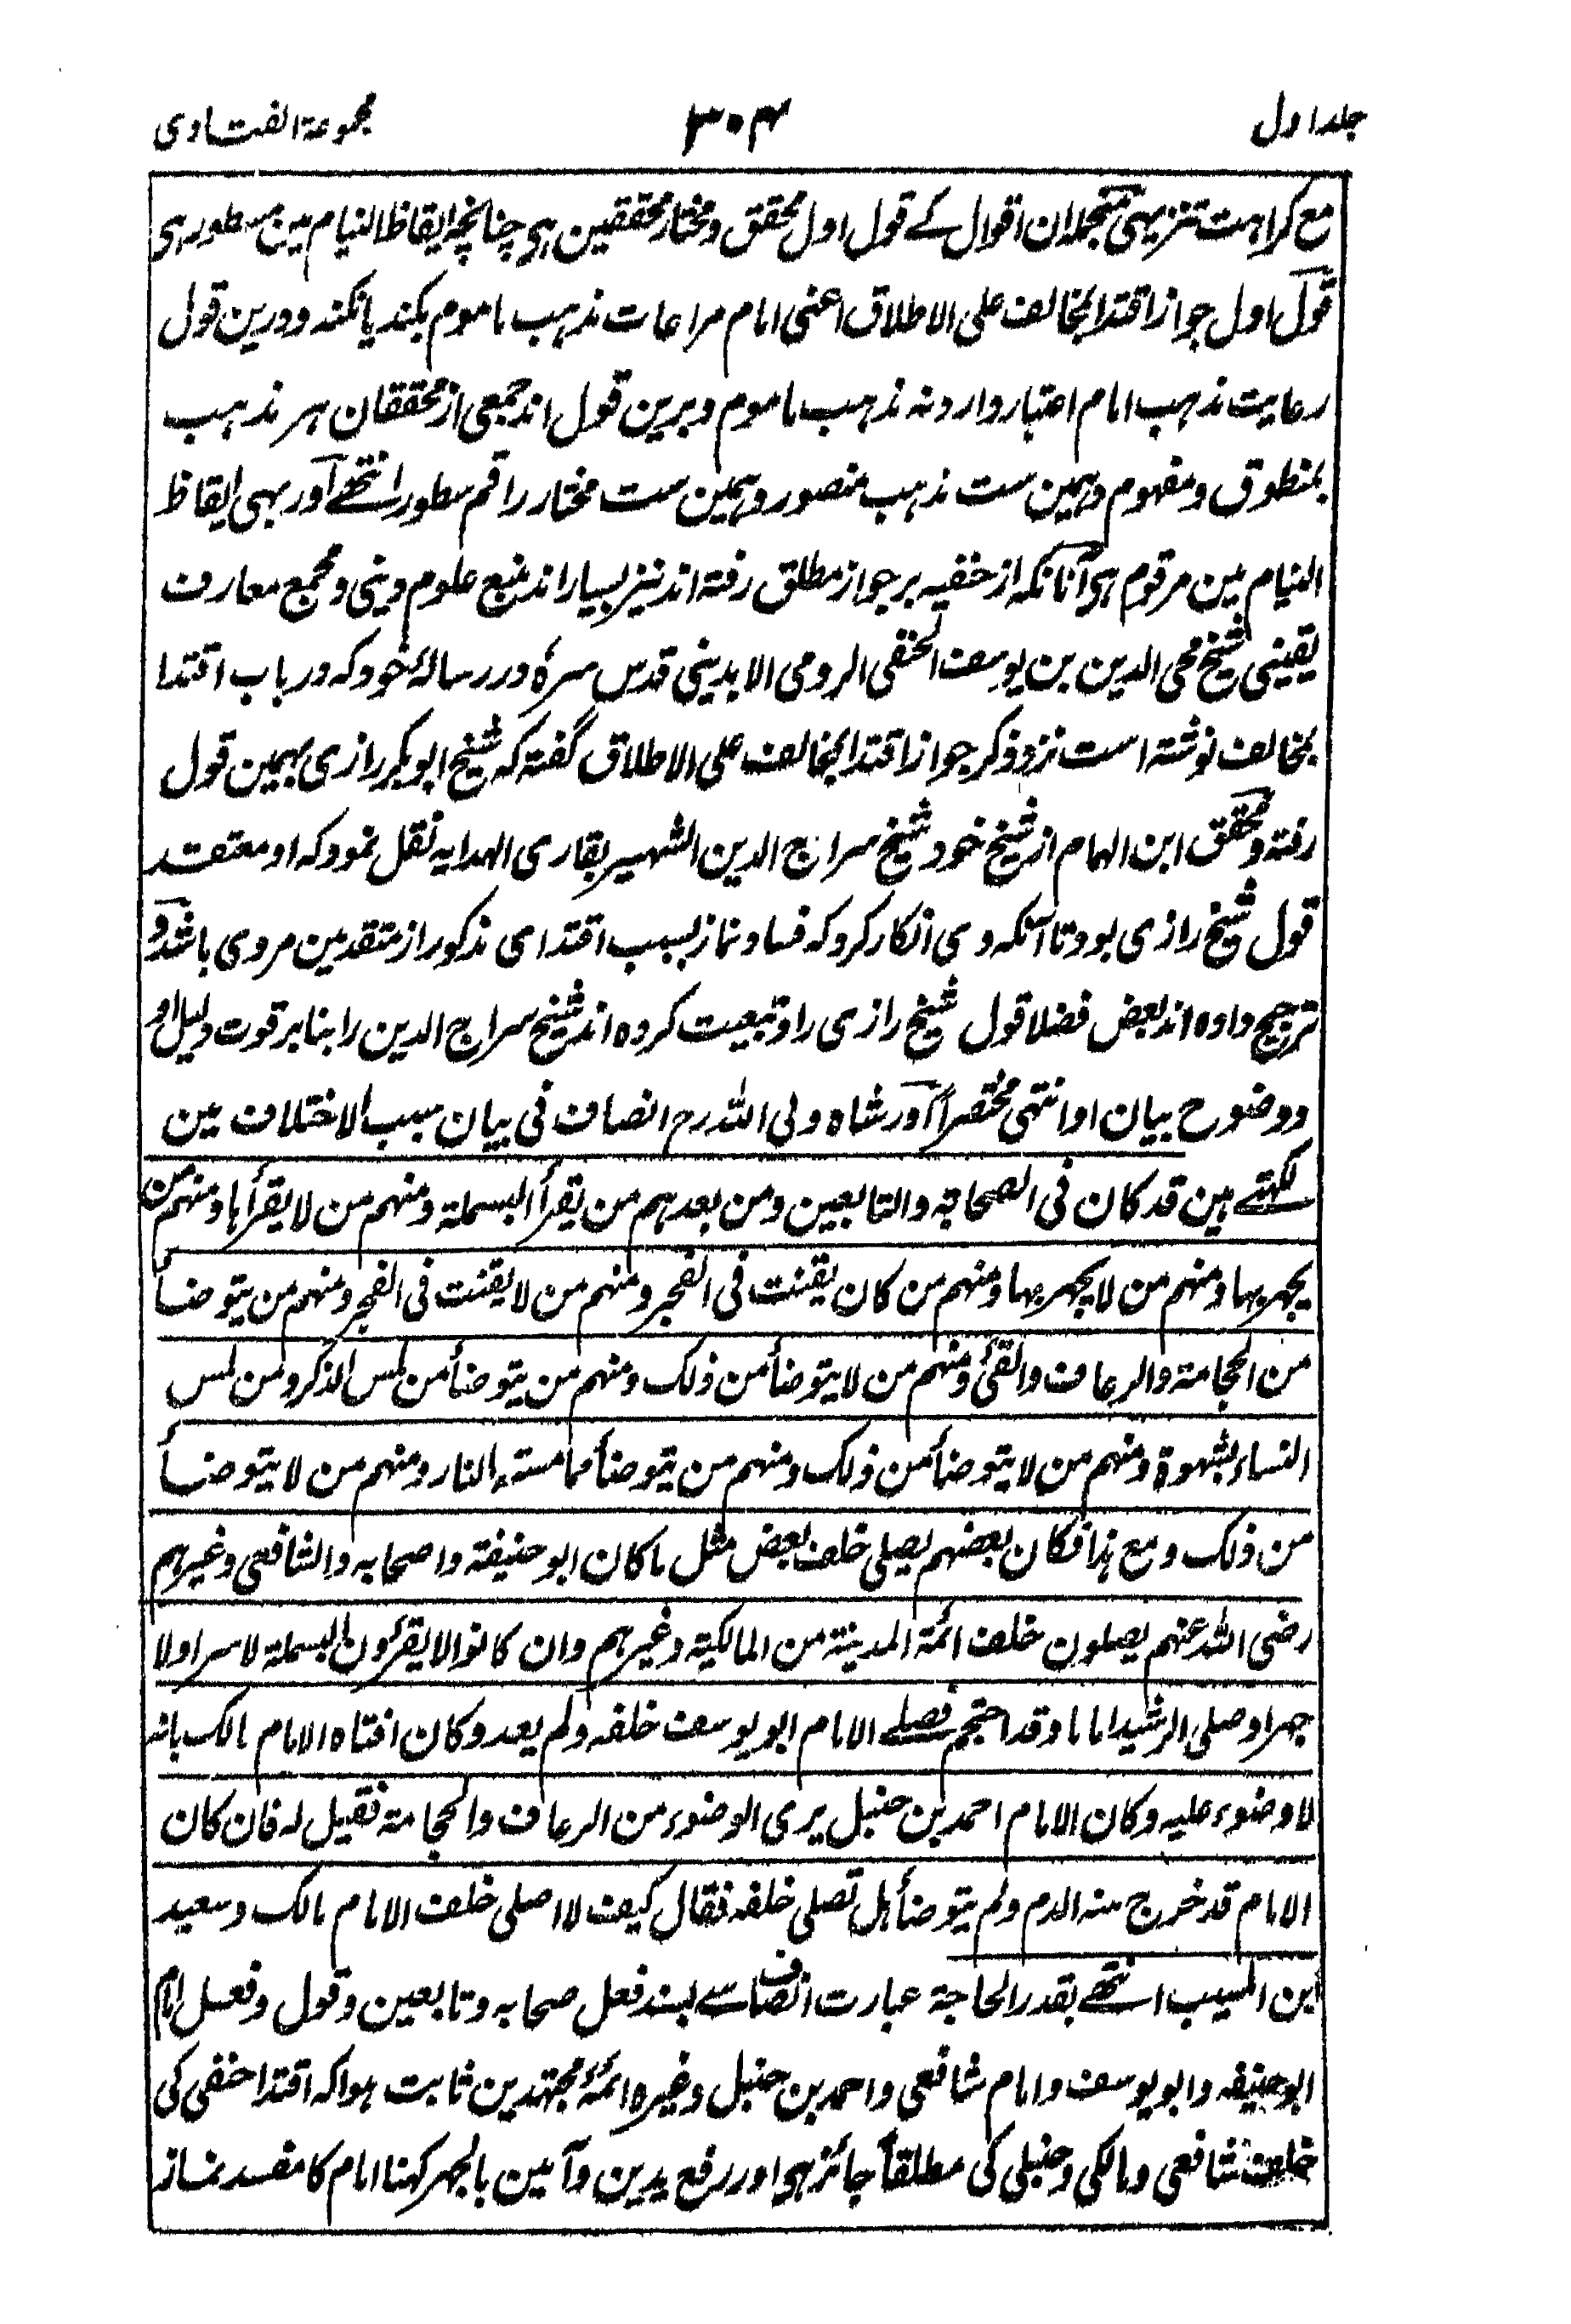 جلد اول
۳۰۴
مجموعة الفتاوی
مع کراہت تنزیہی منجملہ ان اقوال کے قول اول محقق و مختار محققین ہی چنانچہ ایقاظ النیام مین مسطور ہی
قول اول جواز اقتدا بمخالف علی الاطلاق اعنی امام مراعات مذہب ماموم بکند یا نکند و درین قول
رعایت مذہب امام اعتبار دارد نہ مذہب ماموم و برین قول اند جمعی از محققان ہر مذہب
بمنطوق و مفہوم و ہمین ست مذہب منصور و ہمین ست مختار راقم سطور انتھے اور بھی ایقاظ
النیام مین مرقوم ہی آنانکہ از حنفیہ بر جواز مطلق رفتہ اند نیز بسیار اند منبع علوم دینی و مجمع معارف
یقینی شیخ محی الدین بن یوسف الحنفی الرومی الابدینی قدس سرہ در رسالۂ خود کہ در باب اقتدا
بمخالف نوشتہ است نزد ذکر جواز اقتدا بمخالف علی الاطلاق گفتہ کہ شیخ ابو بکر رازی بہمین قول
رفتہ و محقق ابن الہمام از شیخ خود شیخ سراج الدین الشہیر بقاری الہدایہ نقل نمود کہ او معتقد
قول شیخ رازی بود تا آنکہ وی انکار کرد کہ فساد نماز بسبب اقتدای مذکور از متقدمین مروی باشد و
ترجیح دادہ اند بعض فضلا قول شیخ رازی را و تبعیت کردہ اند شیخ سراج الدین را بنا بر قوت دلیل او
و وضوح بیان او انتہی مختصراً اور شاہ ولی اللہ رح انصاف فی بیان سبب الاختلاف مین
لکھتے ہین قد کان فی الصحابۃ والتابعین ومن بعدہم من یقرأ البسملۃ ومنہم من لا یقرأہا ومنہم من
یجہر بہا ومنہم من لا یجہر بہا ومنہم من کان یقنت فی الفجر ومنہم من لا یقنت فی الفجر ومنہم من یتوضأ
من الحجامۃ والرعاف والقئ ومنہم من لا یتوضأ من ذلک ومنہم من یتوضأ من لمس الذکر ومن لمس
النساء بشہوۃ ومنہم من لا یتوضأ من ذلک ومنہم من یتوضأ مما مستہ النار ومنہم من لا یتوضأ
من ذلک ومع ہذا فکان بعضہم یصلی خلف بعض مثل ما کان ابو حنیفۃ واصحابہ والشافعی وغیرہم
رضی اللہ عنہم یصلون خلف ائمۃ المدینۃ من المالکیۃ وغیرہم وان کانوا لا یقرئون البسملۃ لا سرا ولا
جہرا وصلی الرشید اماما وقد احتجم فصلے الامام ابو یوسف خلفہ ولم یعد وکان افتاہ الامام مالک بانہ
لا وضوء علیہ وکان الامام احمد بن حنبل یری الوضوء من الرعاف والحجامۃ فقیل لہ فان کان
الامام قد خرج منہ الدم ولم یتوضأ ہل تصلی خلفہ فقال کیف لا اصلی خلف الامام مالک وسعید
ابن المسیب انتھے بقدر الحاجۃ عبارت انصاف سے بسند فعل صحابہ وتابعین وقول وفعل امام
ابو حنیفہ وابو یوسف وامام شافعی واحمد بن حنبل وغیرہ ائمۂ مجتہدین ثابت ہوا کہ اقتدا حنفی کی
خلف شافعی ومالکی وحنبلی کی مطلقاً جائز ہی اور رفع یدین وآمین بالجہر کہنا امام کا مفسد نماز